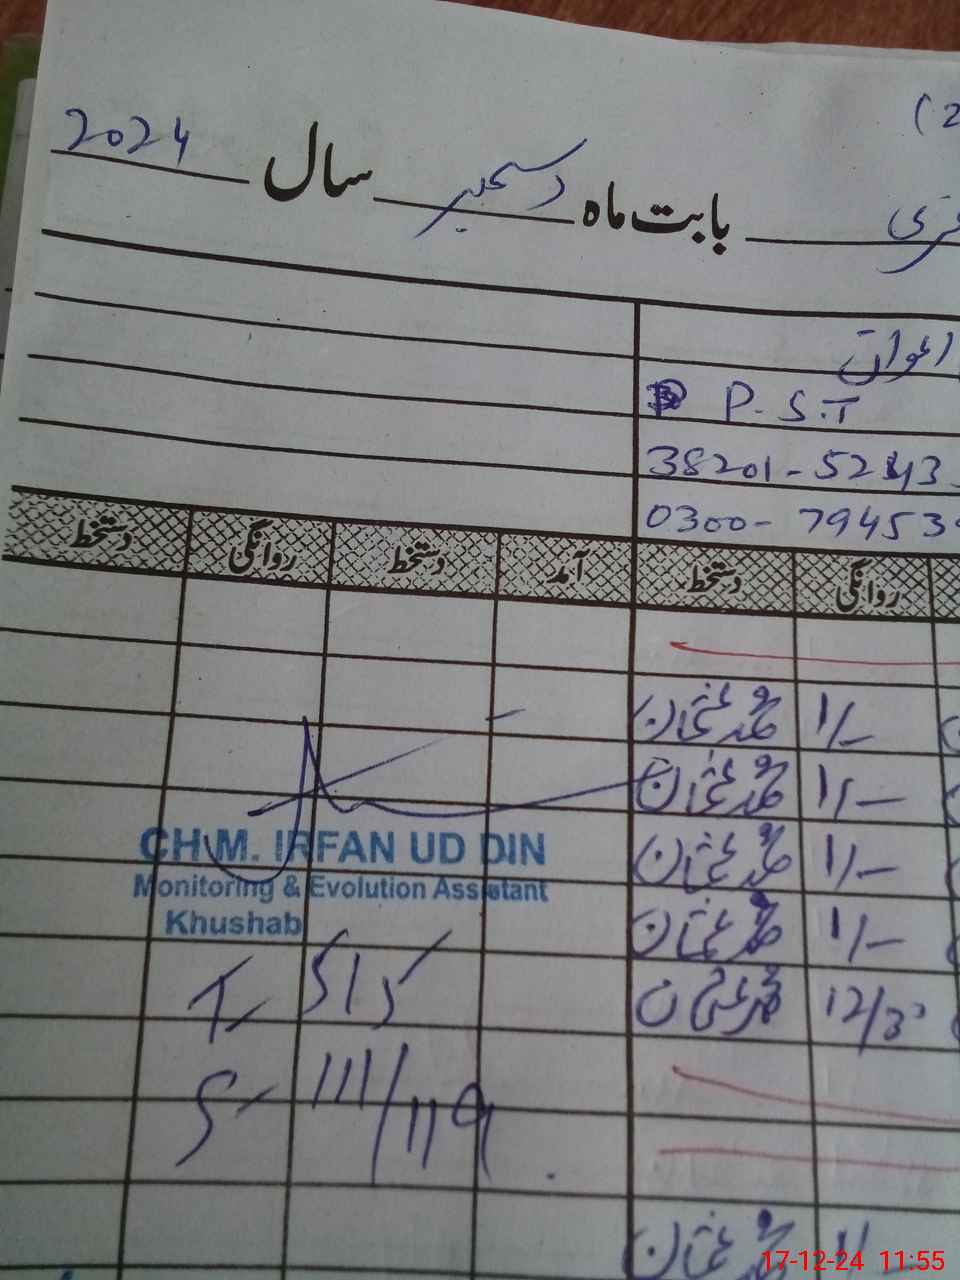 (2
بابت ماہ دسمبر سال 2024
اعوان
P.S.T
38201-52143
0300-794539
روانگی دستخط آمد دستخط روانگی دستخط
محمد عثمان 1/-
محمد عثمان 1/-
محمد عثمان 1/-
محمد عثمان 1/-
محمد عثمان 12/30
محمد عثمان
CH.M. IRFAN UD DIN
Monitoring & Evolution Assistant
Khushab
T- 5/5
S- 111/119
17-12-24 11:55